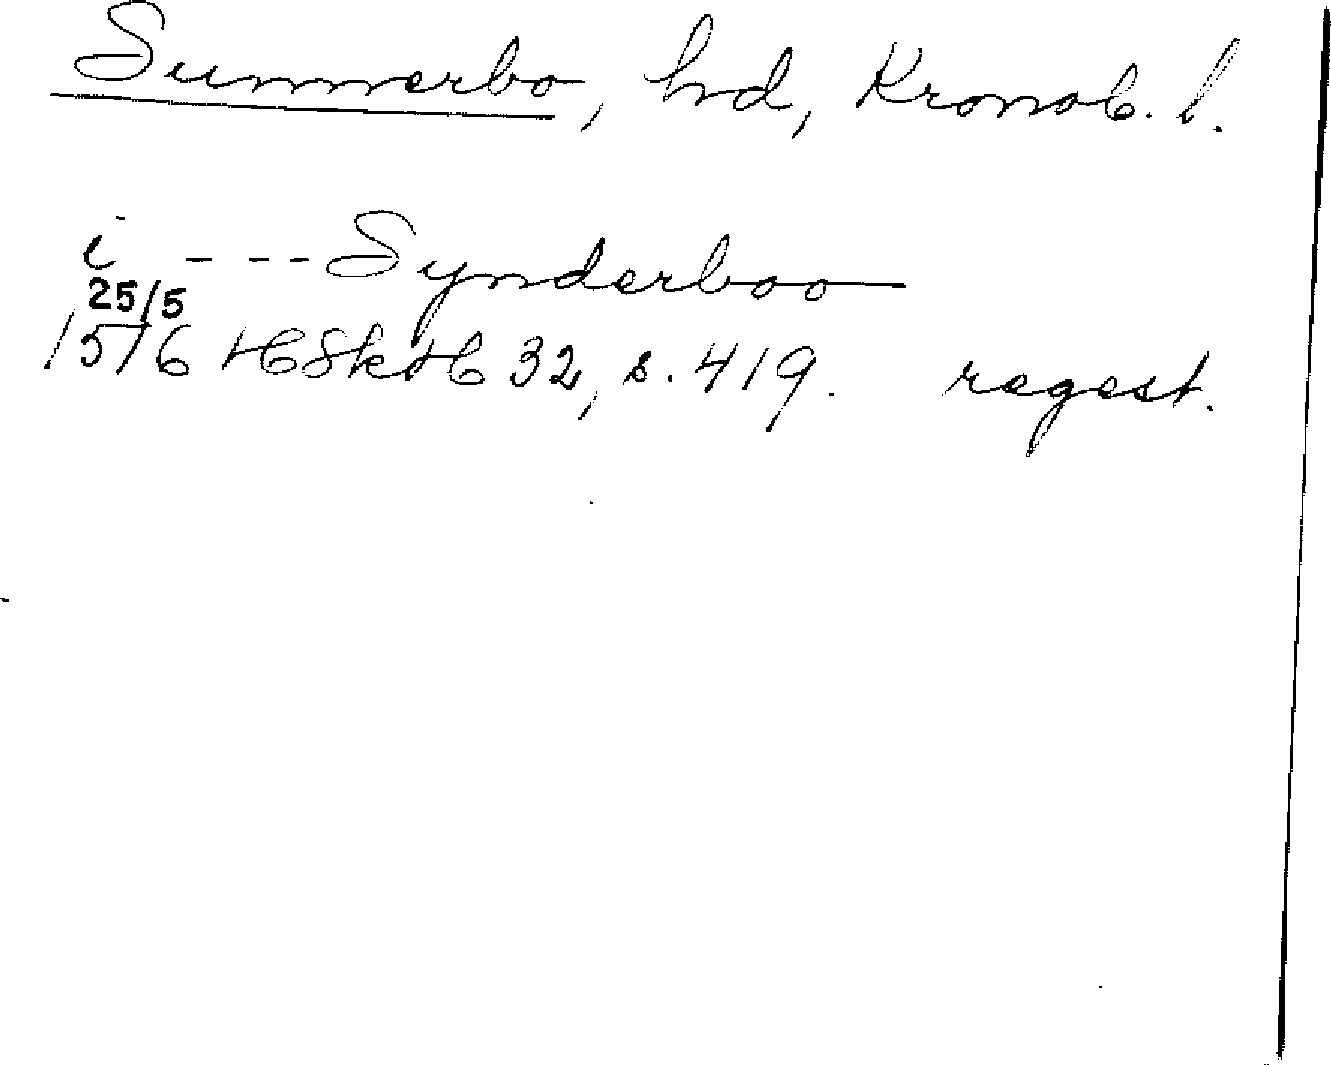 Sunnerbo, hd, Kronob. l.
i - - - Synderboo
25/5
1516 HSkH 32, s. 419. regest.